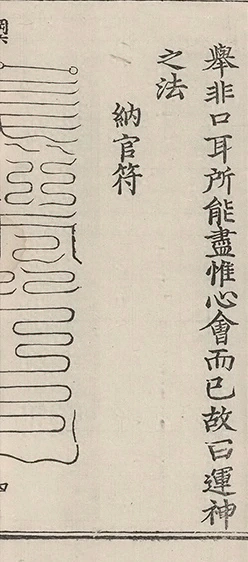 舉非口耳所能盡惟心會而已故曰運神
之法
納官符